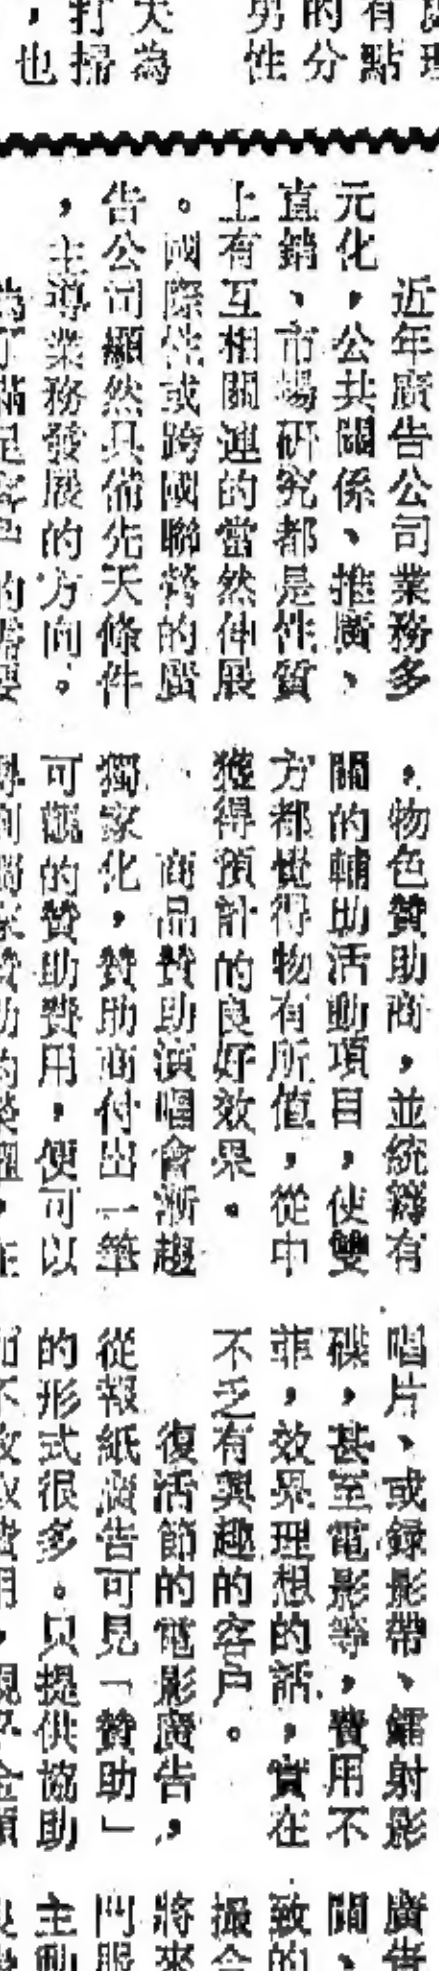 有點
的分
男性
天為
打掃
，也
近年廣告公司業務多
元化，公共關係、推廣、
直銷、市場研究都是性質
上有互相關連的當然伸展
。國際性或跨國聯營的廣
告公司顯然具備先天條件
，主導業務發展的方向。
為了滿足客戶的需要
，物色贊助商，並統籌有
關的輔助活動項目，使雙
方都覺得物有所值，從中
獲得預計的良好效果。
商品贊助演唱會漸趨
獨家化，贊助商付出一筆
可觀的贊助費用，便可以
唱片、或錄影帶、鐳射影
碟，甚至電影等，費用不
菲，效果理想的話，實在
不乏有興趣的客戶。
復活節的電影廣告，
從報紙廣告可見「贊助」
的形式很多。只提供協助
廣告
關、
致的
撮合
將來
門服
主動